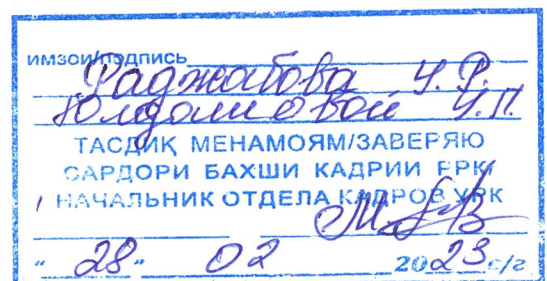 имзои/подпись
Раджабова У. Р.
Юлдошевой У.П.
ТАСДИҚ МЕНАМОЯМ/ЗАВЕРЯЮ
САРДОРИ БАХШИ КАДРИИ РРК/
НАЧАЛЬНИК ОТДЕЛА КАДРОВ УРК
"28" 02 2023 с/г